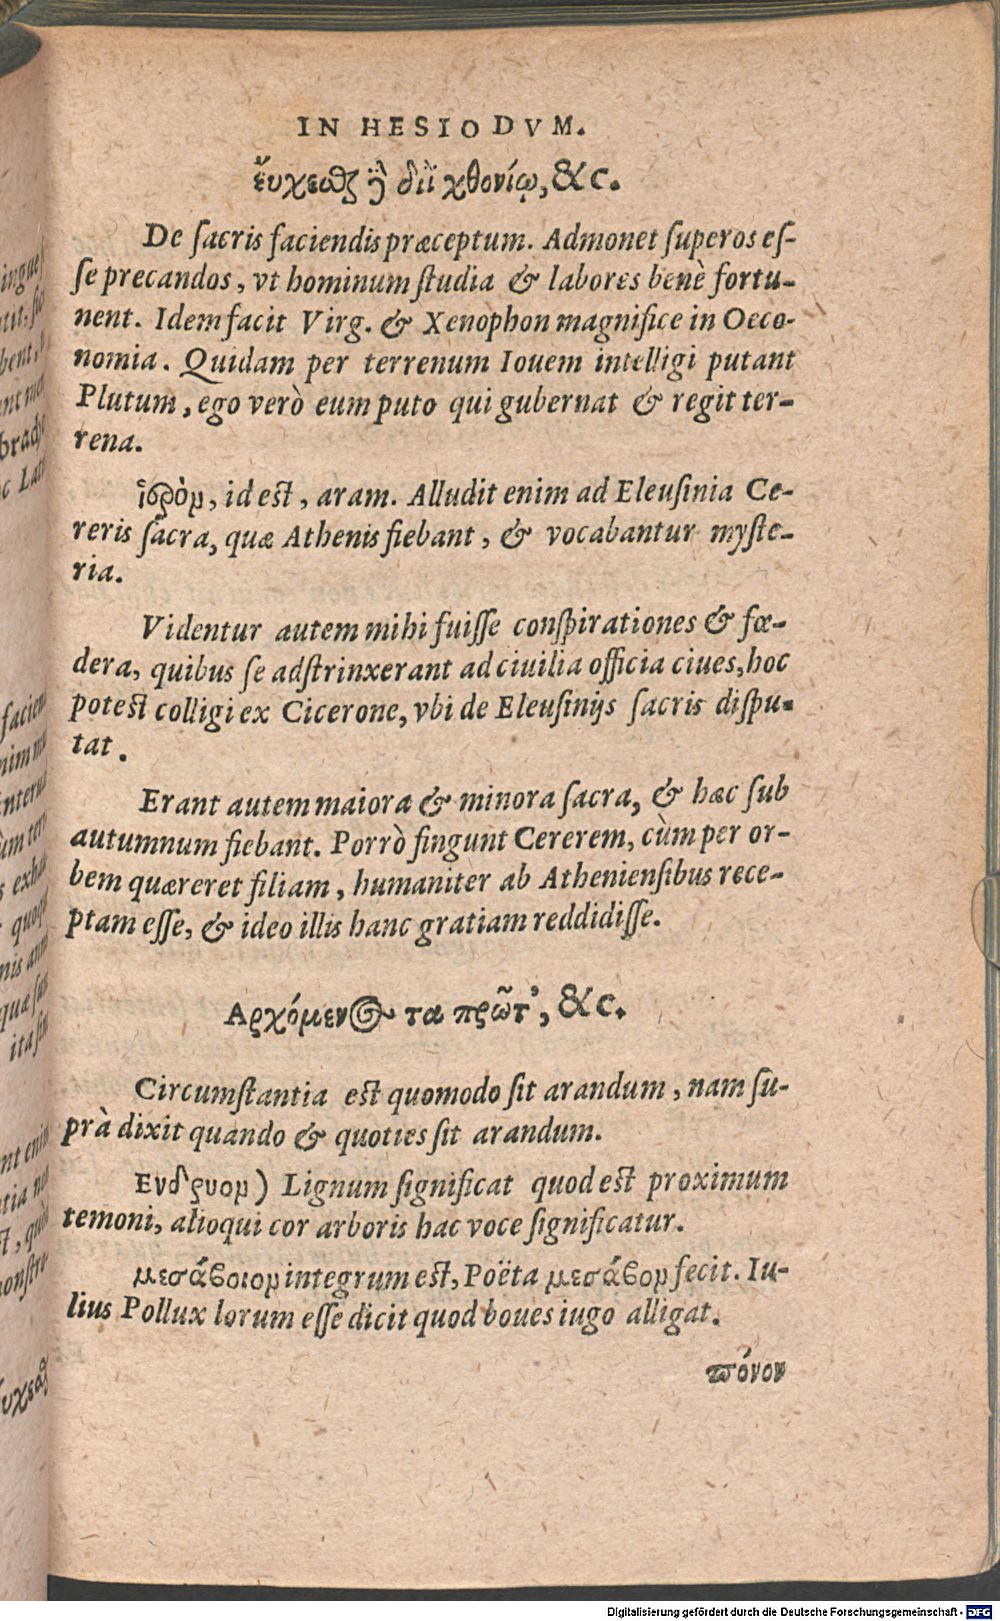 IN HESIODVM.
εὔχεσθαι δὲ διῒ χθονίῳ, &c.
De sacris faciendis præceptum. Admonet superos es-
se precandos, vt hominum studia & labores benè fortu-
nent. Idem facit Virg. & Xenophon magnifice in Oeco-
nomia. Quidam per terrenum Iouem intelligi putant
Plutum, ego verò eum puto qui gubernat & regit ter-
rena.
ἱερὸν, id est, aram. Alludit enim ad Eleusinia Ce-
reris sacra, quæ Athenis fiebant, & vocabantur myste-
ria.
Videntur autem mihi fuisse conspirationes & fœ-
dera, quibus se adstrinxerant ad ciuilia officia ciues, hoc
potest colligi ex Cicerone, vbi de Eleusinijs sacris dispu-
tat.
Erant autem maiora & minora sacra, & hæc sub
autumnum fiebant. Porrò fingunt Cererem, cùm per or-
bem quæreret filiam, humaniter ab Atheniensibus rece-
ptam esse, & ideo illis hanc gratiam reddidisse.
Αρχόμενος τα πρῶτ', &c.
Circumstantia est quomodo sit arandum, nam su-
prà dixit quando & quoties sit arandum.
Ενδρυον) Lignum significat quod est proximum
temoni, alioqui cor arboris hac voce significatur.
μεσάβοιον integrum est, Poëta μεσάβον fecit. Iu-
lius Pollux lorum esse dicit quod boues iugo alligat.
πόνον
Digitalisierung gefördert durch die Deutsche Forschungsgemeinschaft - DFG